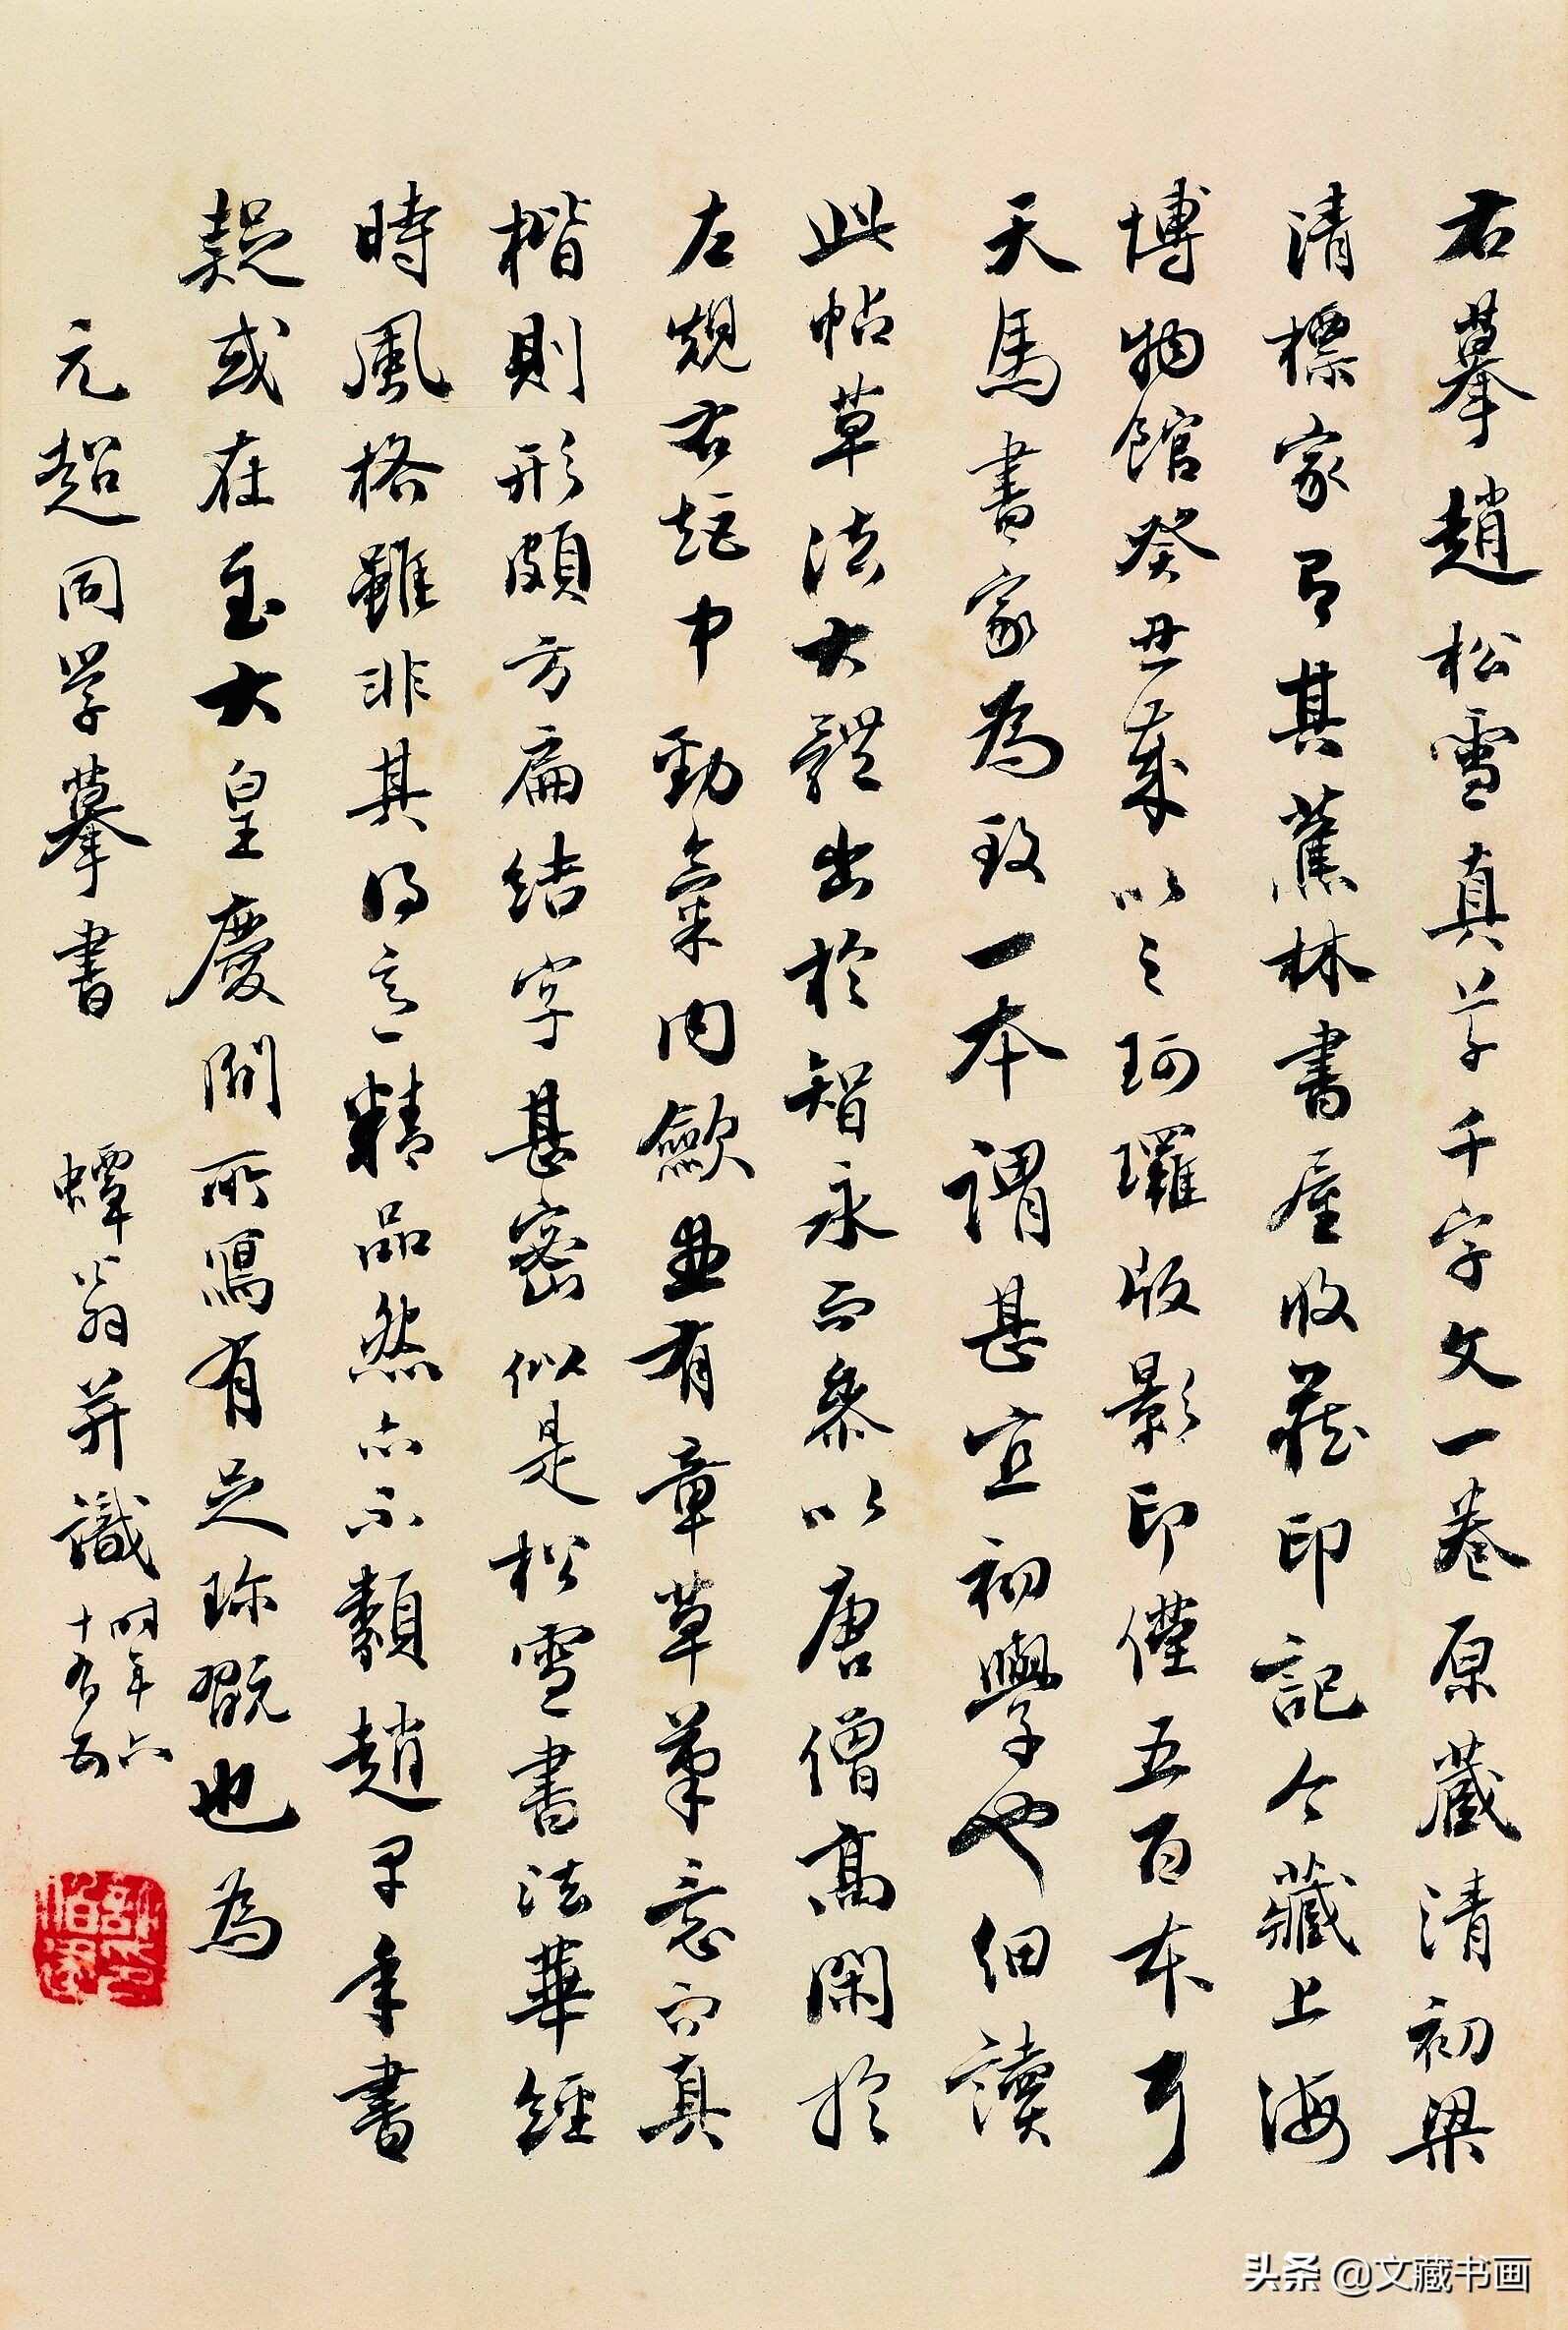 右摹趙松雪真草千字文一卷原藏清初梁
清標家有其蕉林書屋收藏印記今藏上海
博物館癸丑歲以之珂瓓版影印僅五百本弓
天馬書家為致一本謂甚宜初學也細讀
此帖草法大體出於智永而參以唐僧高閑於
左規右矩中勁氣內歛且有章草筆意而真
楷則形頗方扁結字甚密似是松雪書法華經
時風格雖非其得意精品然亦不類趙早年書
疑或在至大皇慶間所寫有足珍翫也為
元超同學摹書 蟫翁并識 時年六十有五
头条 @文藏书画